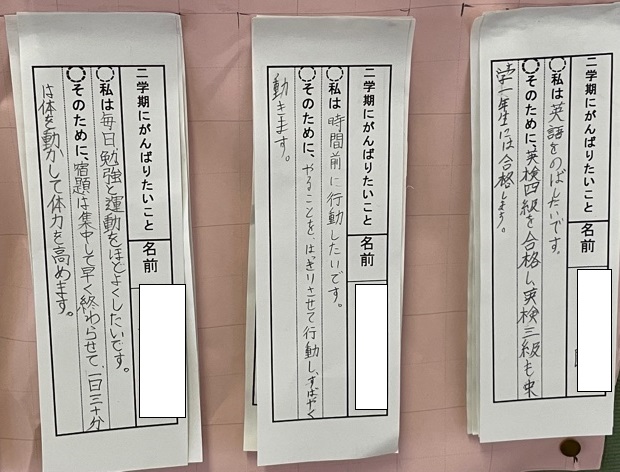 二学期にがんばりたいこと 名前
私は英語をのばしたいです。
そのために、英検四級を合格し英検三級も中
学一年生には合格します。
二学期にがんばりたいこと 名前
私は時間前に行動したいです。
そのために、やることを、はっきりさせて行動し、すばやく
動きます。
二学期にがんばりたいこと 名前
私は毎日勉強と運動をほどよくしたいです。
そのために、宿題は集中して早く終わらせて、一日三十分
は体を動かして体力を高めます。